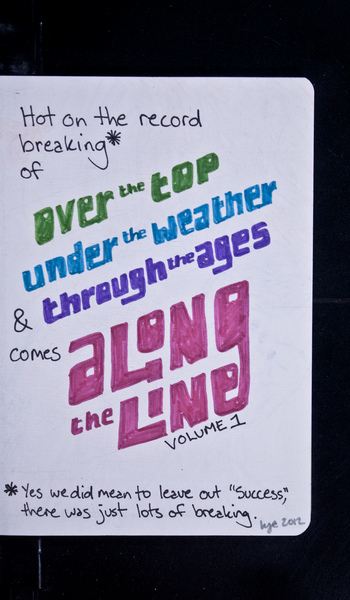 Hot on the record
breaking*
of
over the top
under the weather
& through the ages
comes ALONG
the LINE
VOLUME 1
* Yes we did mean to leave out "Success",
there was just lots of breaking.
kyé 2012